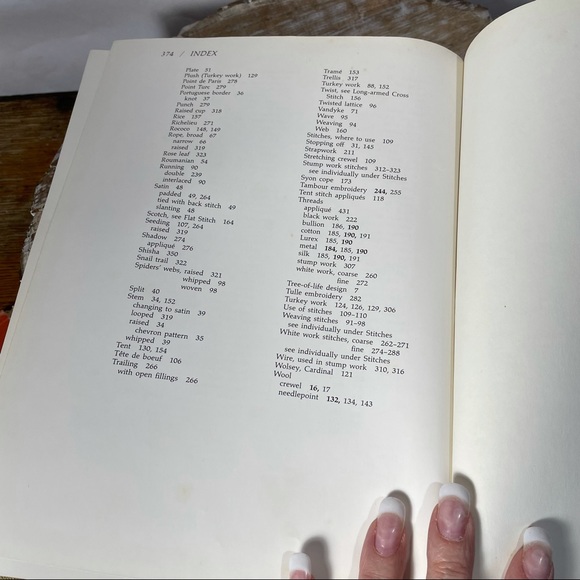 374 / INDEX
Plate 51
Plush (Turkey work) 129
Point de Paris 278
Point Turc 279
Portuguese border 36
knot 37
Punch 279
Raised cup 318
Rice 157
Richelieu 271
Rococo 148, 149
Rope, broad 67
narrow 66
raised 319
Rose leaf 323
Roumanian 54
Running 90
double 239
interlaced 90
Satin 48
padded 49, 264
tied with back stitch 49
slanting 48
Scotch, see Flat Stitch 164
Seeding 107, 264
raised 319
Shadow 274
appliqué 276
Shisha 350
Snail trail 322
Spiders' webs, raised 321
whipped 98
woven 98
Split 40
Stem 34, 152
changing to satin 39
looped 319
raised 34
chevron pattern 35
whipped 39
Tent 130, 154
Tête de boeuf 106
Trailing 266
with open fillings 266
Tramé 153
Trellis 317
Turkey work 88, 152
Twist, see Long-armed Cross
Stitch 156
Twisted lattice 96
Vandyke 71
Wave 95
Weaving 94
Web 160
Stitches, where to use 109
Stopping off 31, 145
Strapwork 211
Stretching crewel 109
Stump work stitches 312–323
see individually under Stitches
Syon cope 173
Tambour embroidery 244, 255
Tent stitch appliqués 118
Threads
appliqué 431
black work 222
bullion 186, 190
cotton 185, 190, 191
Lurex 185, 190
metal 184, 185, 190
silk 185, 190, 191
stump work 307
white work, coarse 260
fine 272
Tree-of-life design 7
Tulle embroidery 282
Turkey work 124, 126, 129, 306
Use of stitches 109–110
Weaving stitches 91–98
see individually under Stitches
White work stitches, coarse 262–271
fine 274–288
see individually under Stitches
Wire, used in stump work 310, 316
Wolsey, Cardinal 121
Wool
crewel 16, 17
needlepoint 132, 134, 143